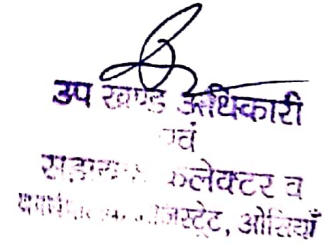 उप खण्ड अधिकारी
एवं
सहायक कलेक्टर व
मजिस्ट्रेट, ओसियाँ